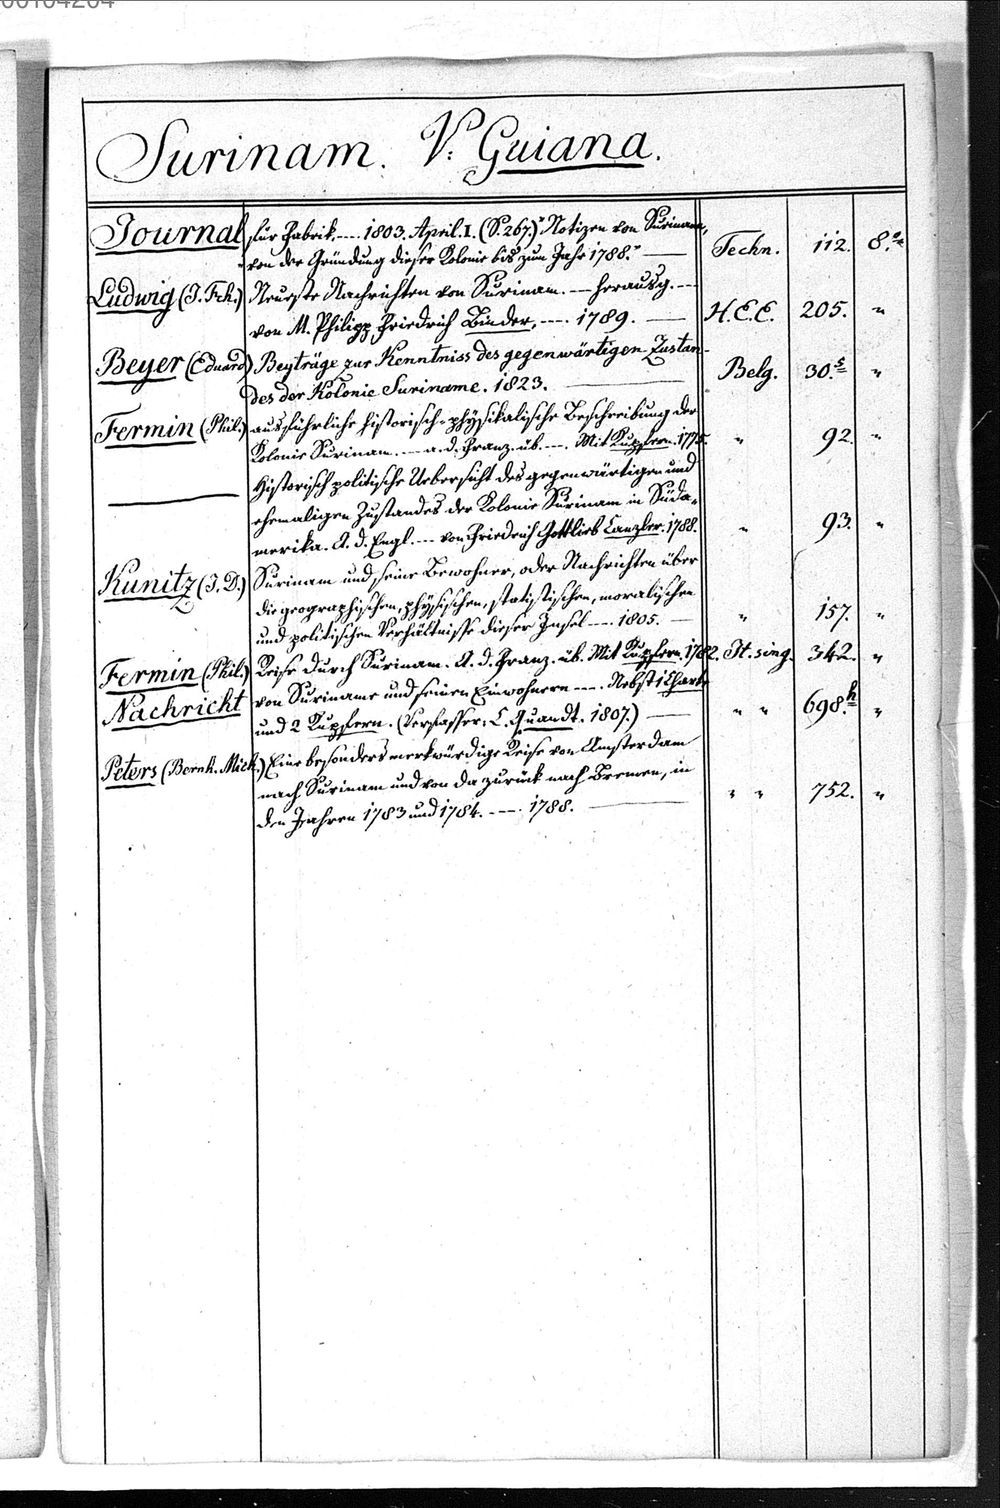 Surinam. V. Guiana.
Journal für Fabrik. --- 1803. April. I. (S. 267.) "Notizen von Surinam,
"von der Gründung dieser Kolonie bis zum Jahr 1788." Techn. 112. 8.o
Ludwig (J. Frh.) Neueste Nachrichten von Surinam. --- herausg. ---
von M. Philipp Friedrich Binder, --- 1789. H.E.E. 205. "
Beyer (Eduard) Beyträge zur Kenntniss des gegenwärtigen Zustan-
des der Kolonie Suriname. 1823. Belg. 30.s "
Fermin (Phil.) ausführliche historisch-physikalische Beschreibung der
Kolonie Surinam. --- a. d. Franz. üb. --- Mit Kupfern. 1775. " 92. "
——— Historisch politische Uebersicht des gegenwärtigen und
ehemaligen Zustandes der Kolonie Surinam in Süda-
merika. A. d. Engl. --- von Friedrich Gottlieb Canzler. 1788. " 93. "
Kunitz (J. D.) Surinam und seine Bewohner, oder Nachrichten über
die geographischen, physischen, statistischen, moralischen
und politischen Verhältnisse dieser Insel --- 1805. " 157. "
Fermin (Phil.) Reise durch Surinam. A. d. Franz. üb. Mit Kupfern. 1782. It. sing. 342. "
Nachricht von Suriname und seinen Einwohnern --- Nebst 1 Charte
und 2 Kupfern. (Verfasser: C. Quandt. 1807.) " " 698.h "
Peters (Bernh. Mich.) Eine besonders merkwürdige Reise von Amsterdam
nach Surinam und von da zurück nach Bremen, in
den Jahren 1783 und 1784. --- 1788. " " 752. "